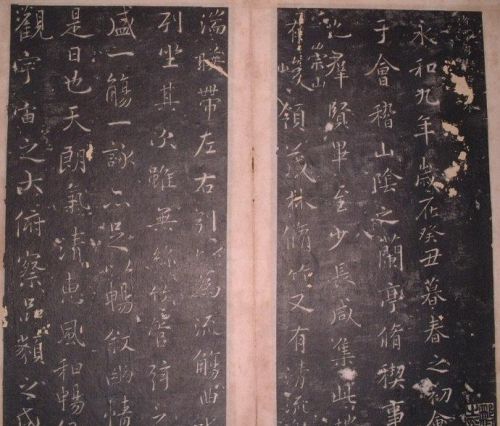 永和九年歲在癸丑暮春之初會
于會稽山陰之蘭亭脩禊事
也羣賢畢至少長咸集此地
有崇山峻領茂林脩竹又有清流
湍映帶左右引以為流觴曲
列坐其次雖無絲竹管弦之
盛一觴一詠亦足以暢敘幽情
是日也天朗氣清惠風和暢
觀宇宙之大俯察品類之盛